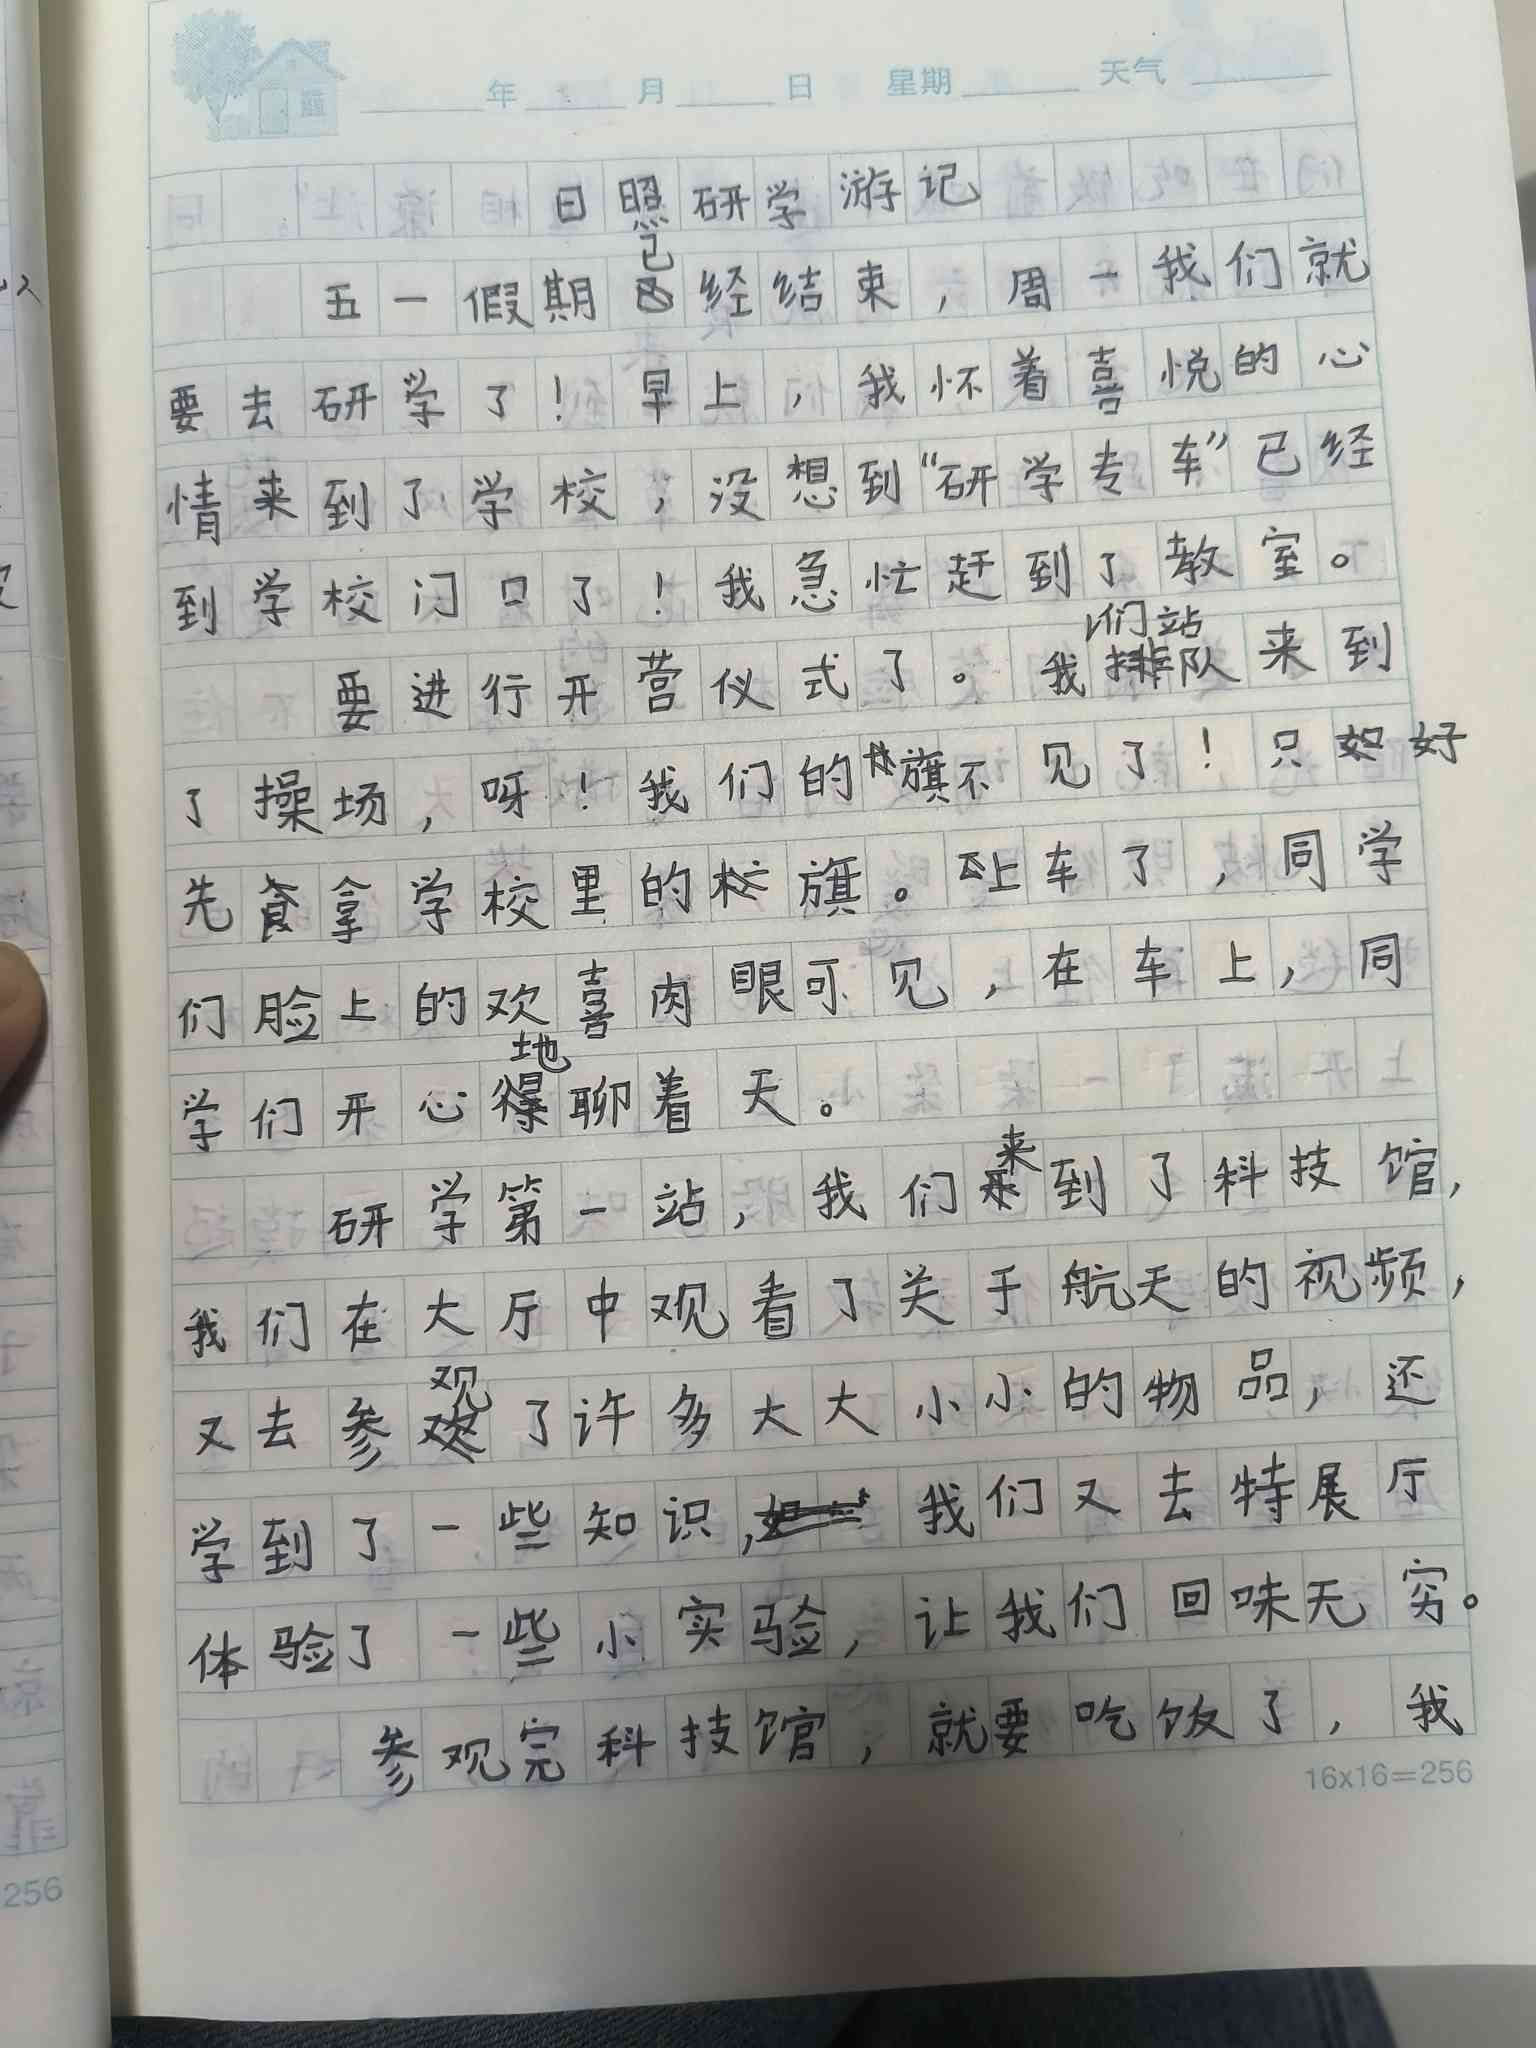 年 月 日 星期 天气
日照研学游记
五一假期已经结束，周一我们就
要去研学了！早上，我怀着喜悦的心
情来到了学校，没想到“研学专车”已经
到学校门口了！我急忙赶到了教室。
要进行开营仪式了。我们站排队来到
了操场，呀！我们的旗不见了！只好
先拿学校里的校旗。上车了，同学
们脸上的欢喜肉眼可见，在车上，同
学们开心地聊着天。
研学第一站，我们来到了科技馆，
我们在大厅中观看了关于航天的视频，
又去参观了许多大大小小的物品，还
学到了一些知识，我们又去特展厅
体验了一些小实验，让我们回味无穷。
参观完科技馆，就要吃饭了，我
16x16=256
256